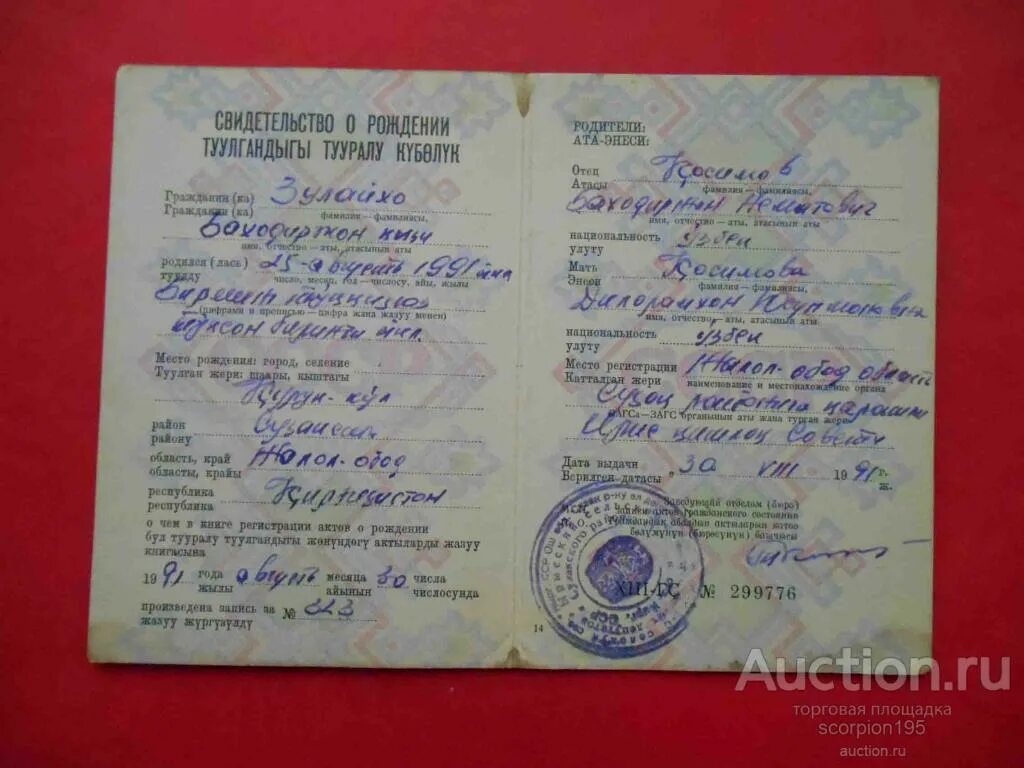 СВИДЕТЕЛЬСТВО О РОЖДЕНИИ
ТУУЛГАНДЫГЫ ТУУРАЛУ КҮБӨЛҮК
Гражданин (ка) Зулайхо
Гражданин (ка) фамилия — фамилиясы,
Баходиржон кизи
имя, отчество — аты, атасынын аты
родился (лась) 25 август 1991 йил
туулду число, месяц, год — числосу, айы, жылы
(цифрами и прописью — цифра жана жазуу менен)
тўқсон биринчи йил
Место рождения: город, селение
Туулган жери: шаары, кыштагы
район Сузакский
району
область, край Жалол-обод
областы, крайы
республика Қирғизистон
республика
о чем в книге регистрации актов о рождении
бул тууралу туулгандыгы жөнүндөгү актыларды жазуу
книгасына
1991 года август месяца 30 числа
жылы айынын числосунда
произведена запись за № 323
жазуу жүргүзүлдү
РОДИТЕЛИ:
АТА-ЭНЕСИ:
Отец Қосимов
Атасы фамилия — фамилиясы,
Баходиржон Неъматович
имя, отчество — аты, атасынын аты
национальность ўзбек
улуту
Мать Қосимова
Энеси фамилия — фамилиясы,
Дилорамхон
имя, отчество — аты, атасынын аты
национальность ўзбек
улуту
Место регистрации Жалол-обод область
Катталган жери наименование и местонахождение органа
Сузоқ район
ЗАГСа — ЗАГС органынын аты жана турган жери
Ирис қишлоқ Совети
Дата выдачи „30 VIII 1991 г.
Берилген датасы ж.
Заведующий отделом (бюро)
записи актов гражданского состояния
Граждандык абалдын актыларын катоо
бөлүмүнүн (бюросунун) башчысы
XIII-ГС № 299776
14
Auction.ru
торговая площадка
scorpion195
auction.ru